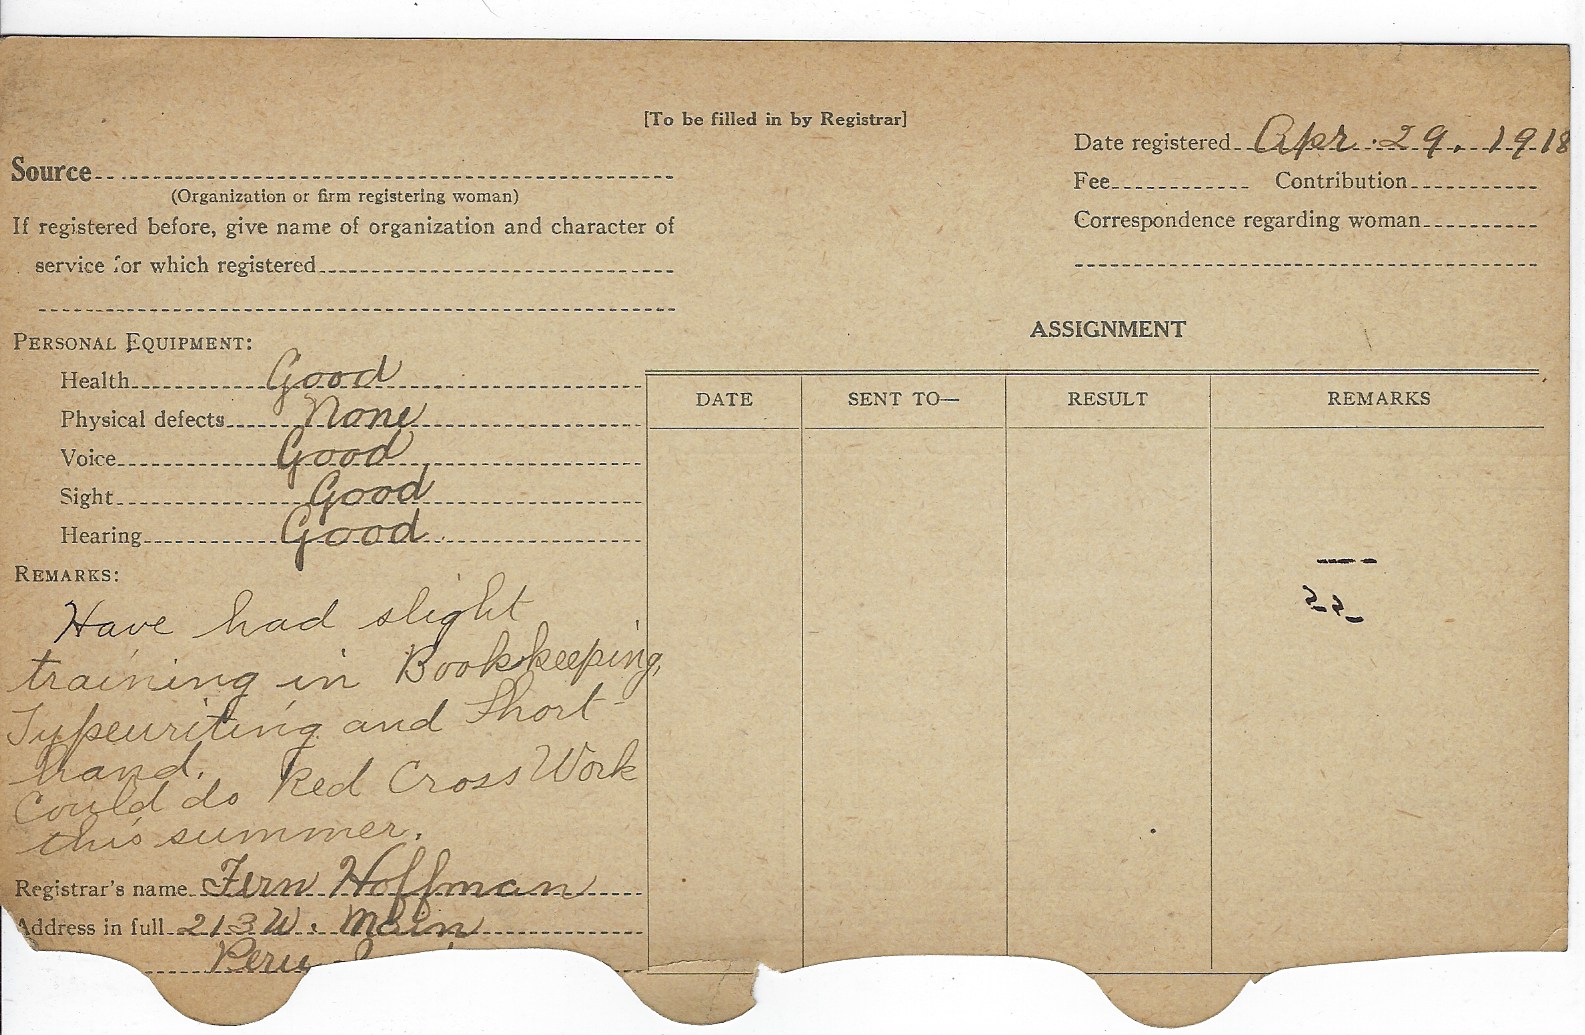 [To be filled in by Registrar]
Date registered Apr. 29, 1918
Source
(Organization or firm registering woman)
Fee Contribution
If registered before, give name of organization and character of
service for which registered
Correspondence regarding woman
PERSONAL EQUIPMENT:
Health Good
Physical defects None
Voice Good
Sight Good
Hearing Good
ASSIGNMENT
DATE SENT TO— RESULT REMARKS
REMARKS:
Have had slight
training in Bookkeeping,
Typewriting and Short-
hand.
Could do Red Cross Work
this summer.
Registrar's name Fern Hoffman
Address in full 213 W. Main
Peru